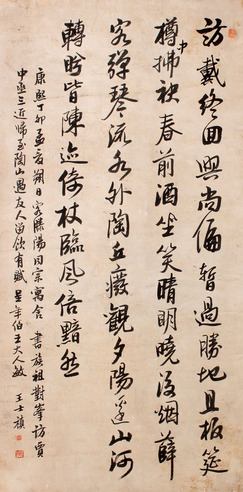 訪戴終回興尚偏暫過勝地且板筵
樽拂袂春前酒坐笑晴明曉後烟薜
客彈琴流水外陶丘癡觀夕陽邊山河
轉眄皆陳迹倚杖臨風倍黯然
康熙丁卯孟音朔日客滕陽同宗寓舍書族祖對峯訪賈
中丞三近歸至陶山遇友人留飲有賦呈年伯王大人敏王士禛